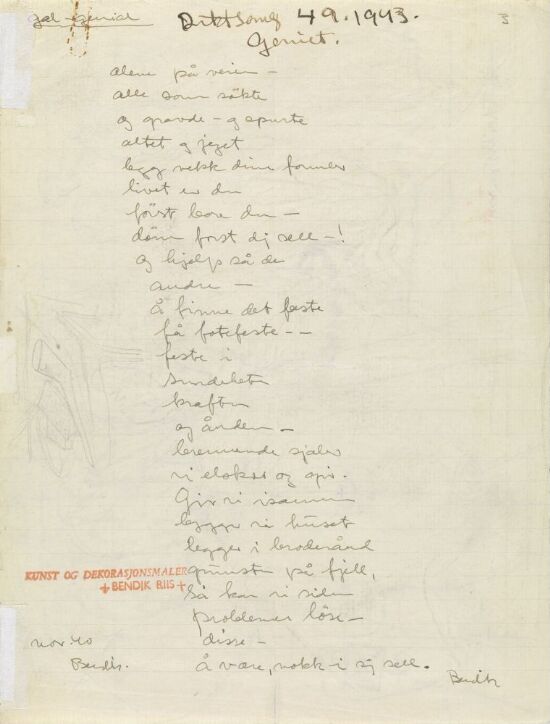 gal-genial
Diktsang 49.1943.
3
Geniet.
alene på veien -
alle som søkte
og gravde - g spurte
altet g jeget
legg vekk dine formler
livet er du
först bare du -
döm först dig sell -!
og hjelp så de
andre -
Å finne det feste
få fotefeste --
feste i
sundheten
kraften
og ånden -
brennende sjeler
vi elsker og gir.
Gir vi isammen
bygger vi huset
legger i broderånd
grunnst på fjell,
Så kan vi siden
problemer löse-
disse -
Å være, nokk-i sig sell.
KUNST OG DEKORASJONSMALER
+BENDIK RIIS+
nov. 40
Bendik.
Bendik